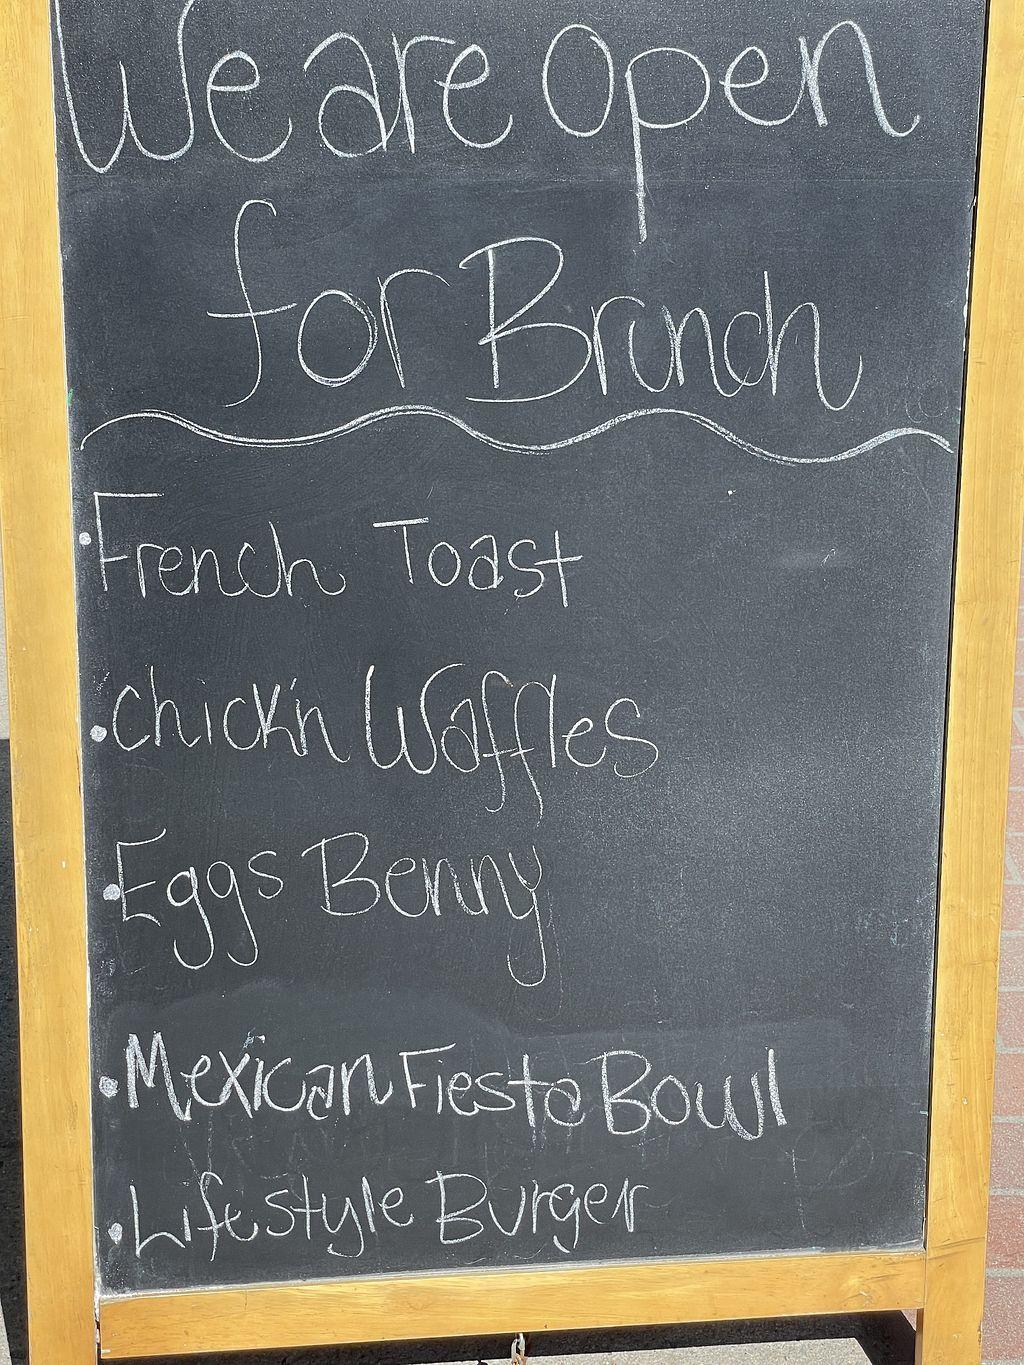 We are open
for Brunch
• French Toast
• Chick'n Waffles
• Eggs Benny
• Mexican Fiesta Bowl
• Lifestyle Burger